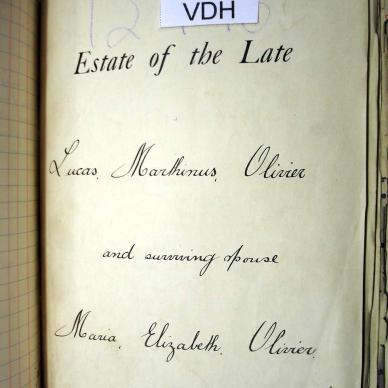 VDH
Estate of the Late
Lucas, Marthinus, Olivier
and surviving spouse
Maria, Elizabeth, Olivier